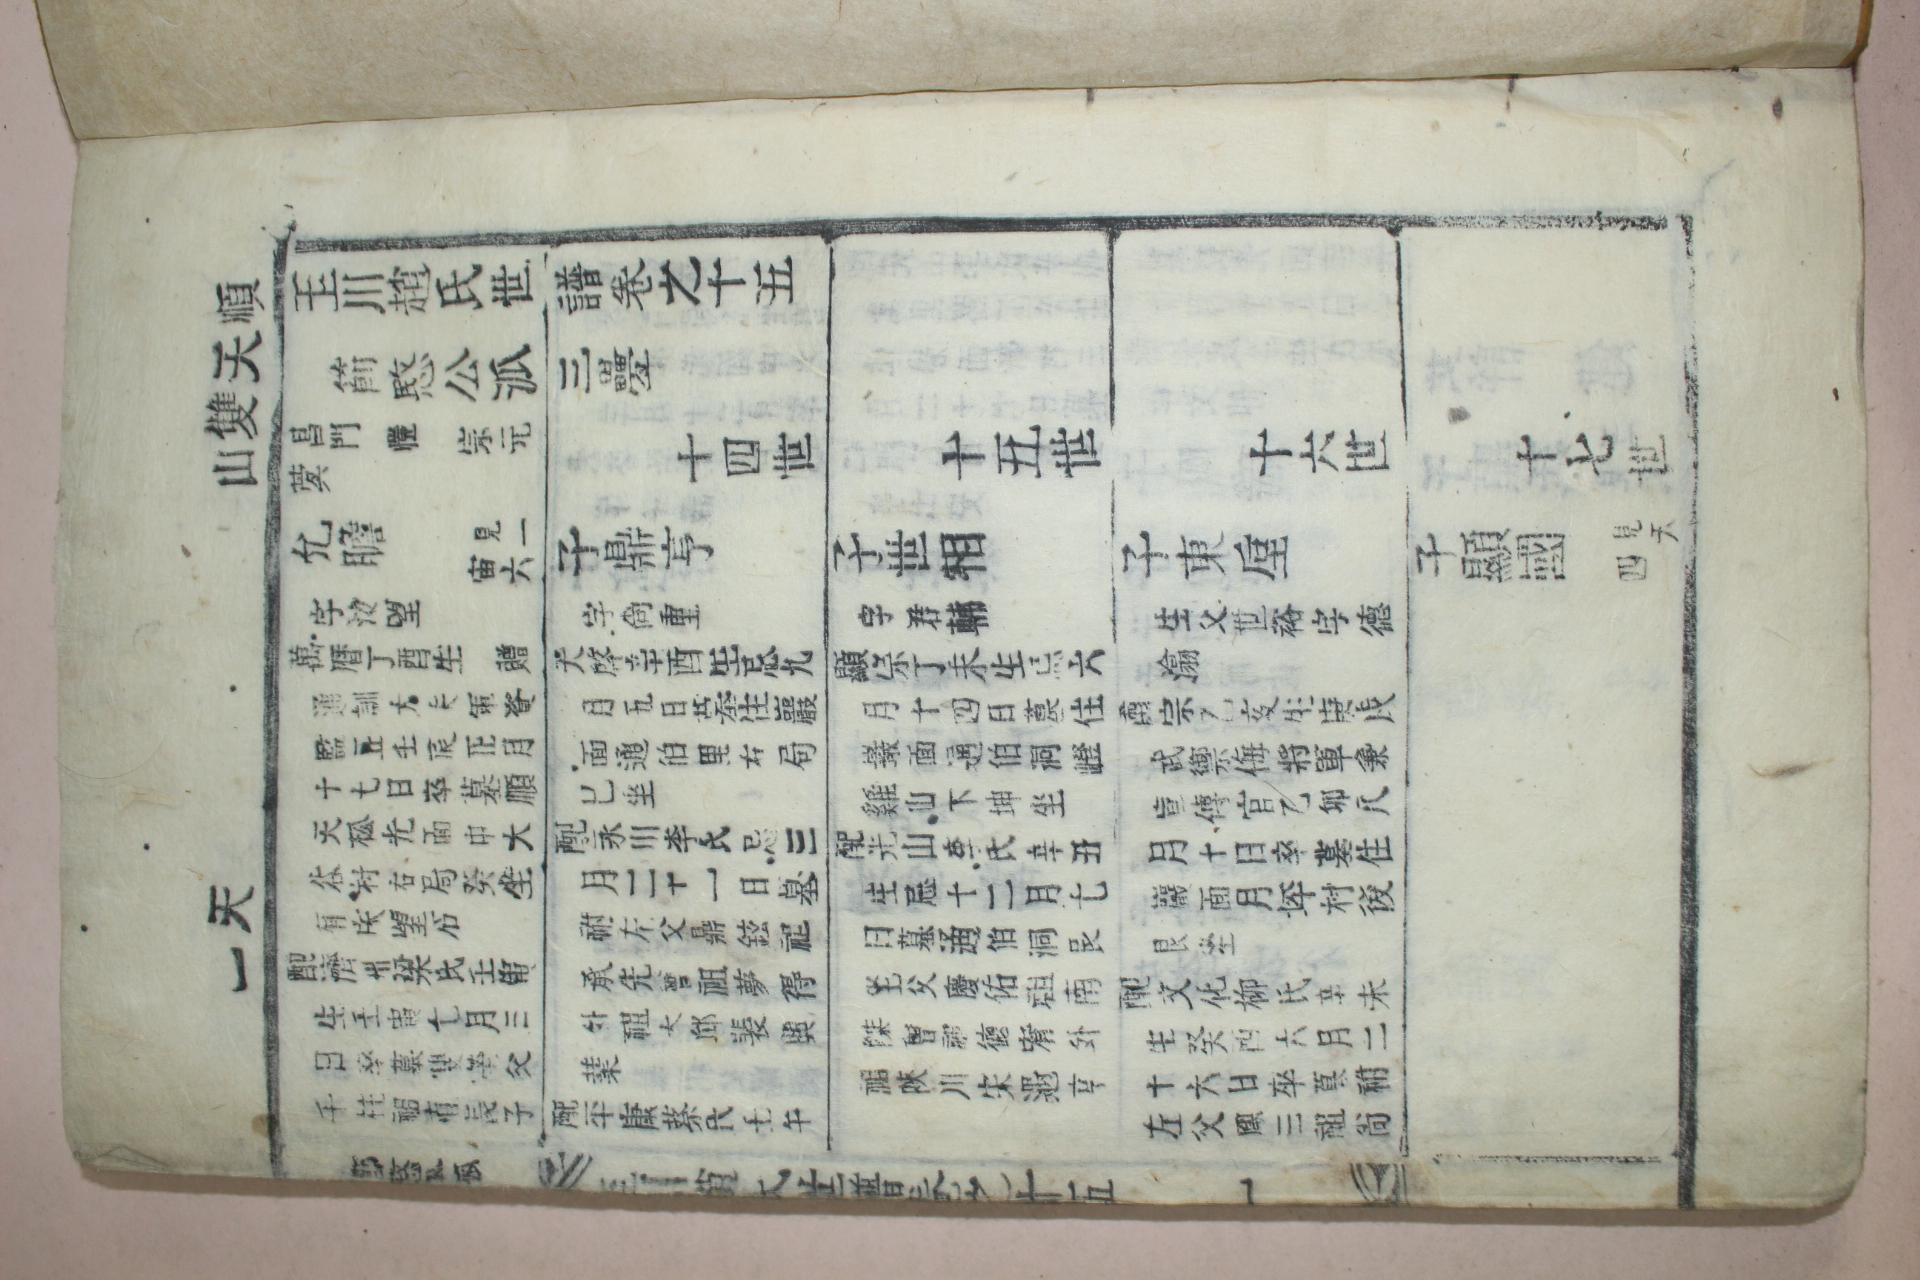 順天雙山
天一
玉川趙氏世譜卷之十五
節愍公派 三疊
昌門 愷 宗元
蓂
十四世
十五世
十六世
十七世
允瞻 見一
宙六
字汝望
萬曆丁酉生 贈
通訓大夫軍資
監正壬辰正月
十七日卒墓順
天松光面中大
谷村右局癸坐
有床望石
配濟州梁氏壬寅
生壬寅七月三
日卒墓雙塋父
千柱祖 長子
子鼎亨
字尙重
天啓辛酉生忌九
月五日墓住巖
面通伯里右局
巳坐
配永川李氏忌三
月二十一日墓
祔左父鼎鉉祖
承先曾祖夢得
外祖大邱裴興
葉
配平康蔡氏士午
子世相
字君輔
顯宗丁未生忌六
月十四日墓住
巖面通伯洞嶝
雞山下坤坐
配光山李氏辛丑
生忌十二月七
日墓通伯洞艮
坐父慶佑祖南
傑曾祖德宥外
祖陜川宋遇亨
子東垕
生父世裕字德
瀹
肅宗乙亥生庚戌
武禦侮將軍兼
宣傳官乙卯八
月十日卒墓住
巖面月坪村後
艮坐
配文化柳氏辛未
生癸酉六月二
十六日卒墓祔
左父 三祖尙
子顯國 見天
四
節愍公派
玉川趙氏世譜卷之十五
一